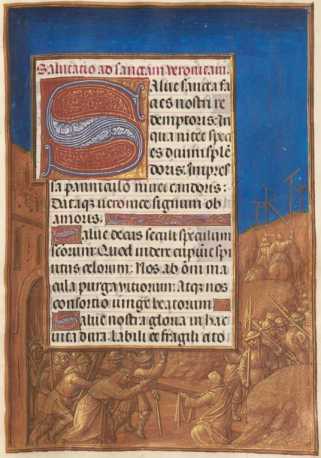 Salutatio ad sanctam veronicam.
Salue sancta fa
cies nostri re
demptoris: In
qua nitet spec
es diuini splē
doris: Impres
sa panniculo niuei candoris:
Dataqz veronice signum ob
amoris.
Salue decus seculi speculum
scorum: Quod videre cupiūt spi
ritus celorum: Nos ab om̄i ma
cula purga vitiorum: Atqz nos
consortio iunge beatorum
Salue nostra gloria in hac
vita dura: Labili et fragili cito